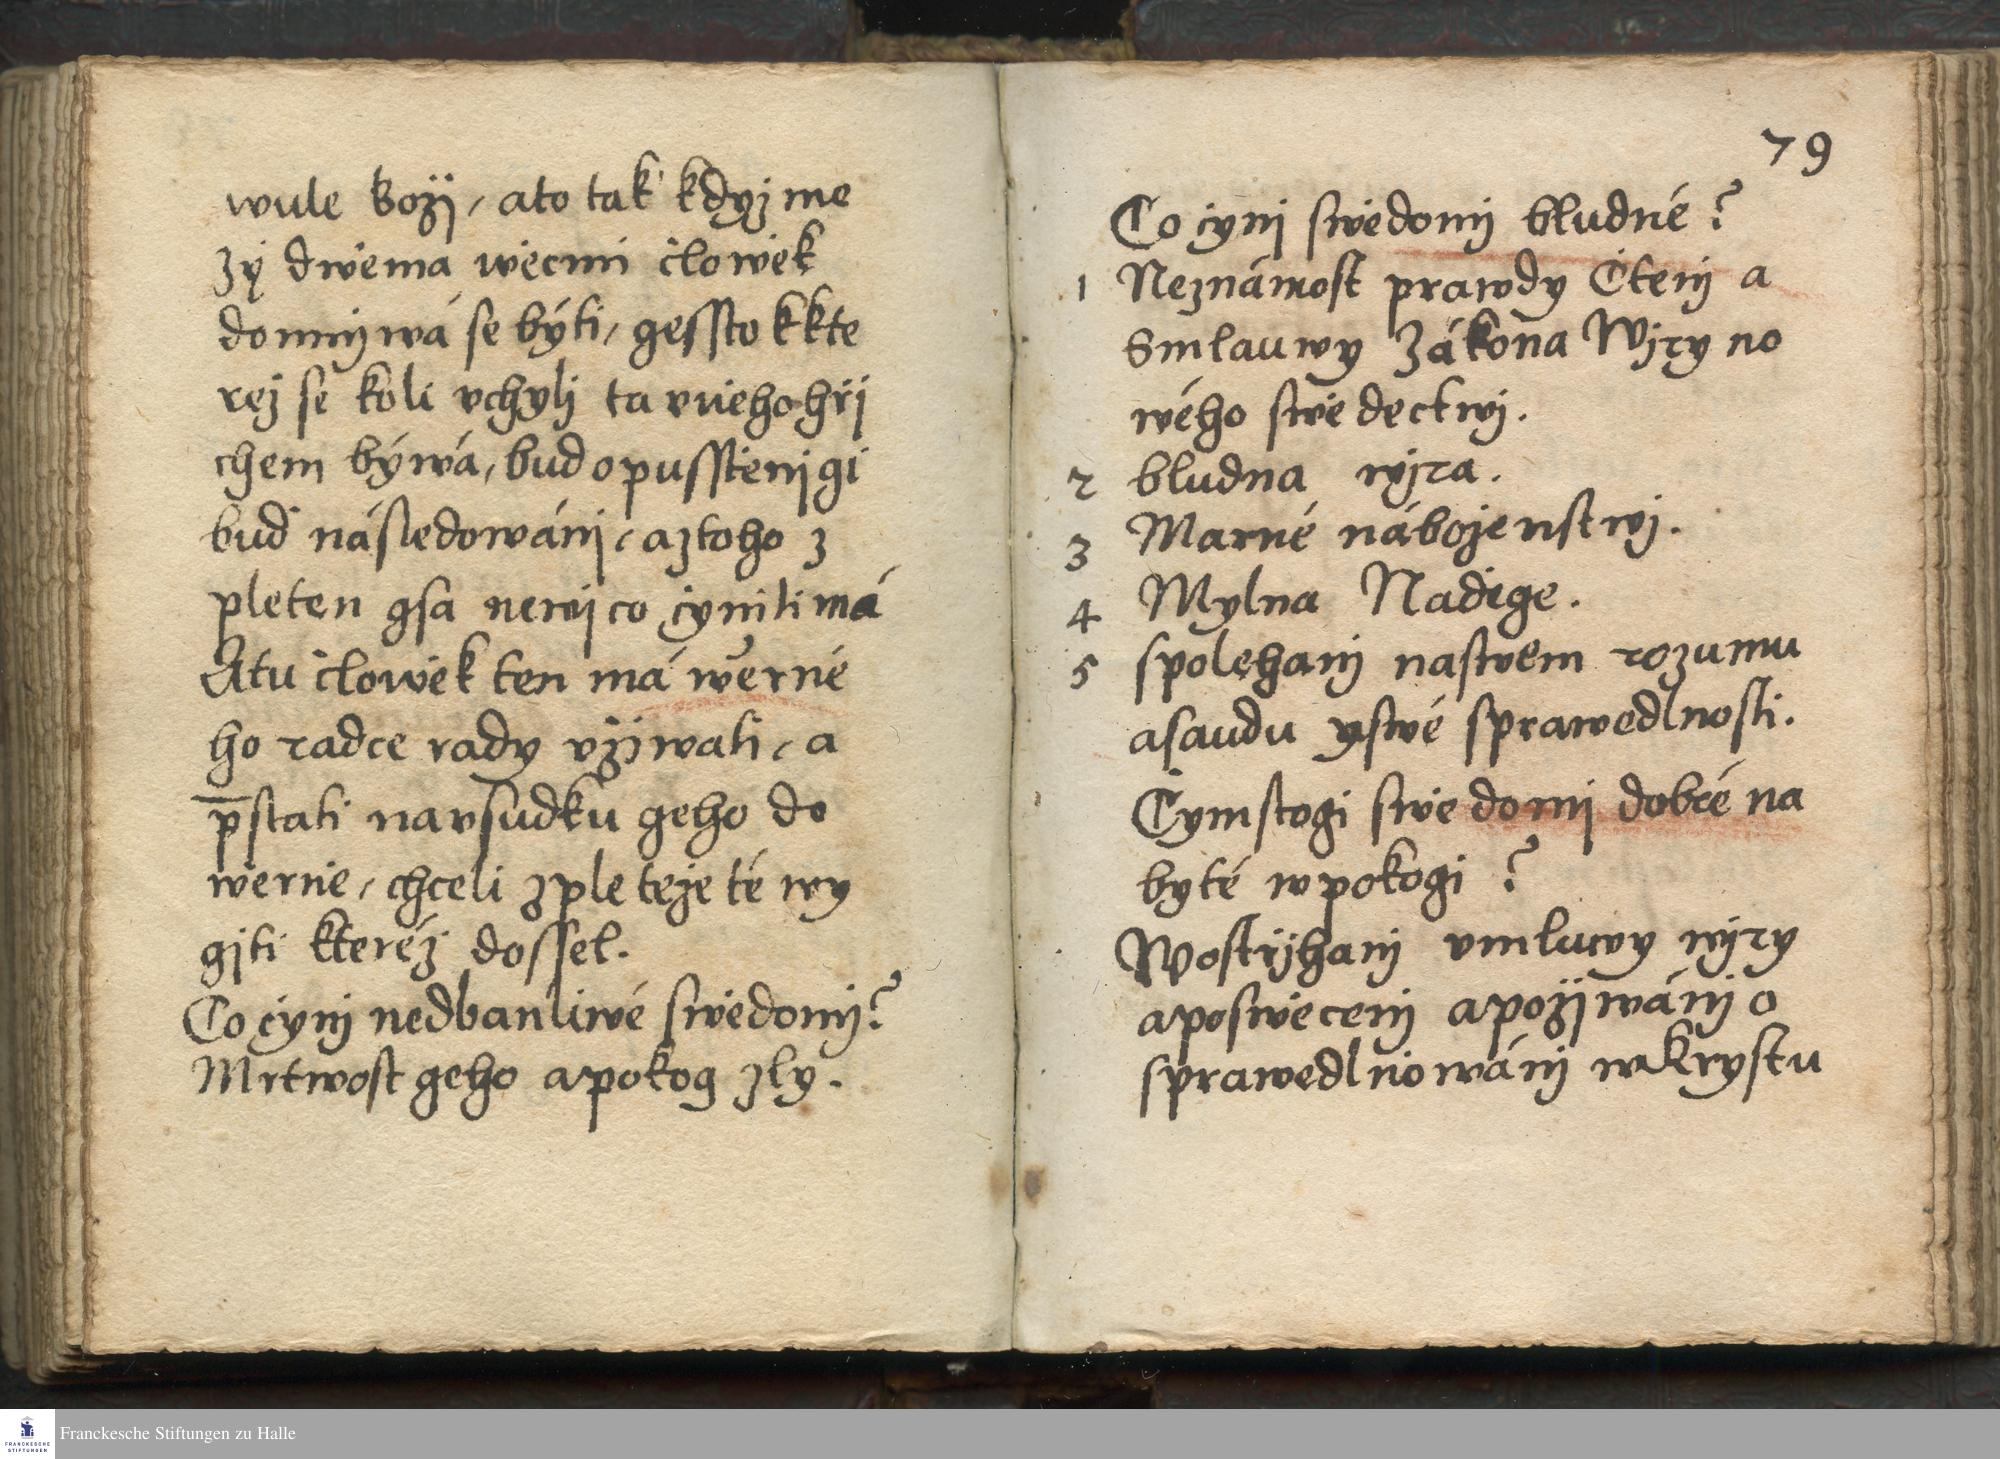 wule Božj, ato tak kdyz me
zy dwěma wěcmi člowěk
domnjwá se býti, gessto kkte
rež se koli vchylj ta vněho hřj
chem býwá, bud opusstěnj gi
bud následowánj, aztoho z
pleten gsa newj co čyniti má
Atu člowěk ten má wěrné
ho radce rady vžjwati, a
p̄stati narsudku geho do
wěrně, chceli zpleteže té wy
gjti kteréž dossel.
Co čynj nedbanliwé swědomj?
Mrtwost geho apokog zly.
79
Co čynj swědomj bludné?
1 Neznámost prawdy Čtenj a
Smlauwy Zákona Wjry no
wého swědectwj.
2 bludna wjra.
3 Marné náboženstwj.
4 Mylna Naděge.
5 spolehanj naswem rozumu
asaudu yswé sprawedlnosti.
Čymstogi swědomj dobré na
byté wpokogi?
Wostřjhanj vmluwy wjry
aposwěcenj apožjwánj o
sprawedlňowánj wKrystu
FRANCKESCHE
STIFTUNGEN
Franckesche Stiftungen zu Halle